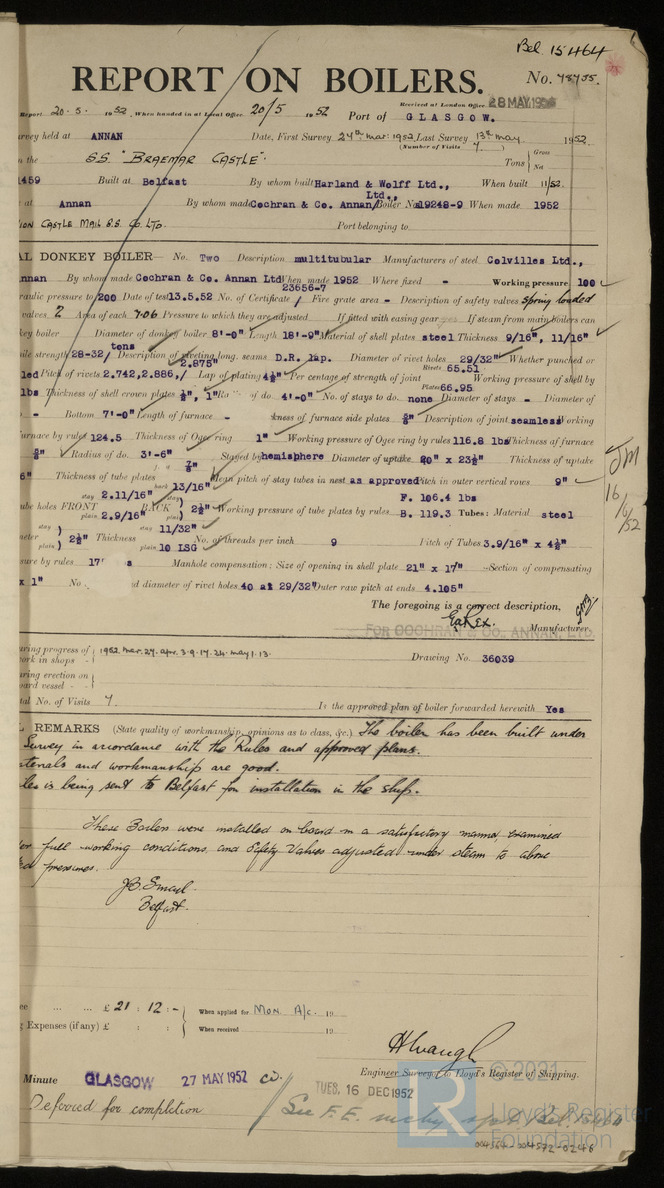 Bel. 15464
REPORT ON BOILERS.
No. 78755.
Received at London Office 28 MAY 1952
Report 20.5. 1952, When handed in at Local Office 20/5 1952 Port of GLASGOW.
rvey held at ANNAN Date, First Survey 27th Mar: 1952 Last Survey 13th May 1952
(Number of Visits 7)
n the S.S. "BRAEMAR CASTLE". Tons { Gross Net
1459 Built at Belfast By whom built Harland & Wolff Ltd., When built 11/52
at Annan By whom made Cochran & Co. Annan Ltd., Boiler Nos 19248-9 When made 1952
ION CASTLE MAIL S.S. CO. LTD. Port belonging to
AL DONKEY BOILER— No. Two Description multitubular Manufacturers of steel Colvilles Ltd.,
nnan By whom made Cochran & Co. Annan Ltd When made 1952 Where fixed - Working pressure 100
raulic pressure to 200 Date of test 13.5.52 No. of Certificate 23656-7 Fire grate area - Description of safety valves spring loaded
valves 2 Area of each 7.06 Pressure to which they are adjusted If fitted with easing gear yes If steam from main boilers can
key boiler Diameter of donkey boiler 8'-0" Length 18'-9" Material of shell plates steel Thickness 9/16", 11/16"
ile strength 28-32/ tons Description of riveting long. seams D.R. lap. Diameter of rivet holes 29/32" Whether punched or
led Pitch of rivets 2.742, 2.886,/ 2.875" Lap of plating 4½" Per centage of strength of joint Rivets 65.51 Plates 66.95 Working pressure of shell by
lbs Thickness of shell crown plates ½", 1" Ra of do. 4'-0" No. of stays to do. none Diameter of stays - Diameter of
- Bottom 7'-0" Length of furnace - kness of furnace side plates ⅝" Description of joint seamless Working
urnace by rules 124.5 Thickness of Ogee ring 1" Working pressure of Ogee ring by rules 116.8 lbs Thickness of furnace
⅝" Radius of do. 3'-6" Stayed by hemisphere Diameter of uptake 20" x 23½" Thickness of uptake
6" Thickness of tube plates ⅞" back 13/16" Mean pitch of stay tubes in nest as approved Pitch in outer vertical rows 9"
ube holes FRONT stay 2.11/16" plain 2.9/16" BACK stay plain 2½" Working pressure of tube plates by rules F. 106.4 lbs B. 119.3 Tubes: Material steel
meter stay plain 2½" Thickness stay 11/32" plain 10 LSG No. of threads per inch 9 Pitch of Tubes 3.9/16" x 4½"
sure by rules 17 s Manhole compensation: Size of opening in shell plate 21" x 17" Section of compensating
x 1" No. d diameter of rivet holes 40 at 29/32" Outer raw pitch at ends 4.105"
JM
16/6/52
The foregoing is a correct description,
FOR COCHRAN & CO., ANNAN, LTD. Manufacturer.
uring progress of work in shops - 1952. Mar. 27. Apr. 3.9.17.24. May 1.13. Drawing No. 36039
uring erection on board vessel -
tal No. of Visits 7 Is the approved plan of boiler forwarded herewith Yes
L REMARKS (State quality of workmanship, opinions as to class, &c.) The boiler has been built under
Survey in accordance with the Rules and approved plans.
aterials and workmanship are good.
iler is being sent to Belfast for installation in the ship.
These Boilers were installed on board in a satisfactory manner, examined
der full working conditions, and Safety Valves adjusted under steam to above
ed pressures.
J.B. Smail.
Belfast.
ee ... ... £ 21 : 12 : - When applied for Mon. A/c. 19
g Expenses (if any) £ : : When received 19
Engineer Surveyor to Lloyd's Register of Shipping.
Minute GLASGOW 27 MAY 1952
TUES. 16 DEC 1952
Deferred for completion
See F.E. mchy rpt. Bel. 15464
© 2021
LR Lloyd's Register Foundation
004564-004572-0246